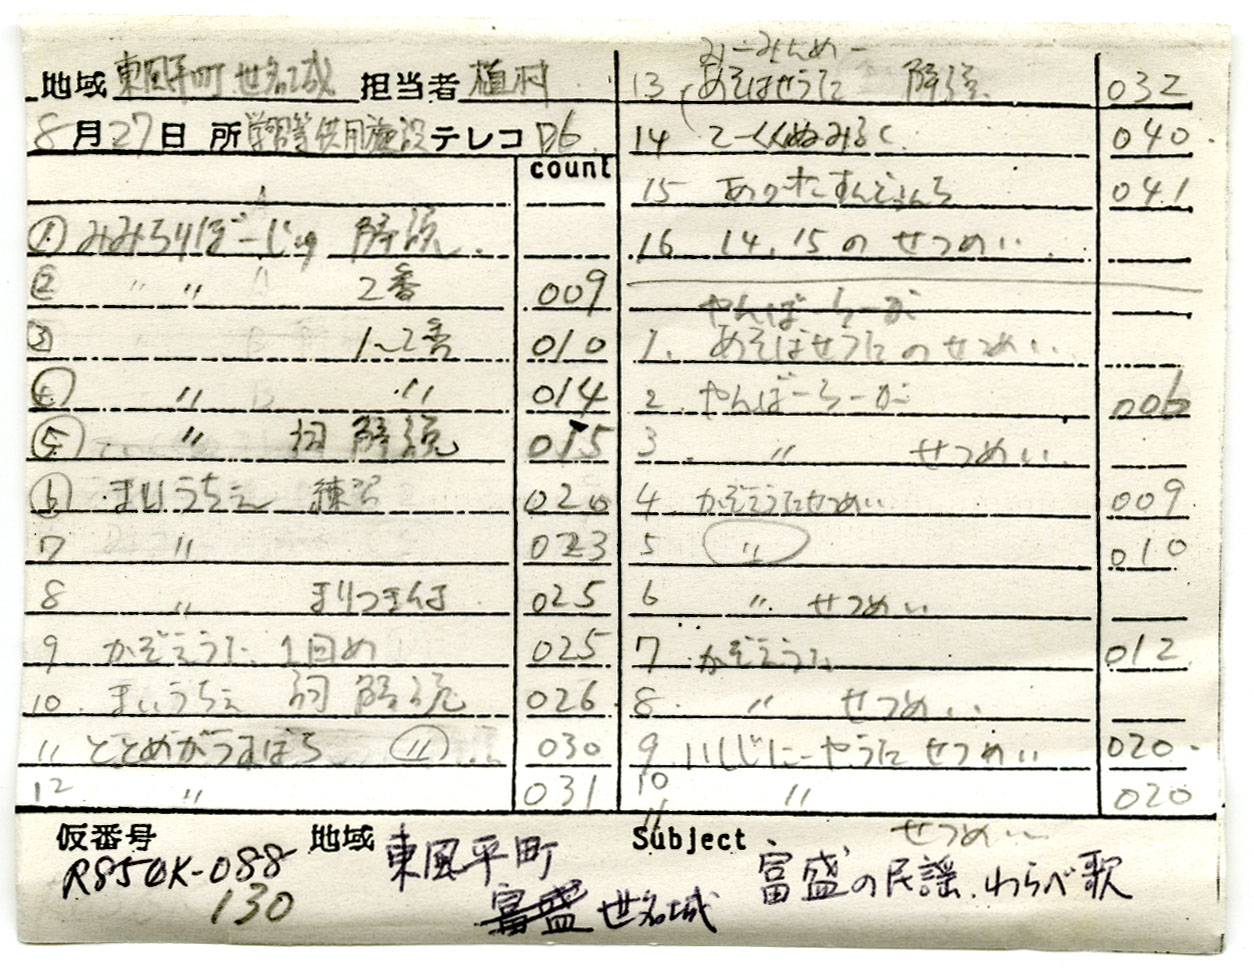 地域 東風平町 世名城 担当者 植村
8月27日 所 学習等供用施設 テレコ D6
count
A
① みみちりぼーじゅ 解説
② 〃 〃 2番 009
③ 1~2番 010
④ 〃 〃 014
⑤ 〃 詞 解説 015
⑥ まいうちぇー 練習 020
7 〃 023
8 〃 まりつきんま 025
9 かぞえうた 1回め 025
10 まいうちぇ 詞 解説 026
11 ととめがうすばち 〃 030
12 〃 031
みーみんめー
13 あそばせうた 解説 032
14 040
15 041
16 14, 15の せつめい
やんばーらーが
1. あそばせうたのせつめい
2 やんばーらーが 006
3 〃 せつめい
4 かぞえうたせつめい 009
5 〃 010
6 〃 せつめい
7 かぞえうた 012
8 〃 せつめい
9 いしじにーやうた せつめい 020
10 〃 020
11 せつめい
仮番号 R850K-088
130
地域 東風平町
富盛 世名城
Subject 富盛の民謡、わらべ歌